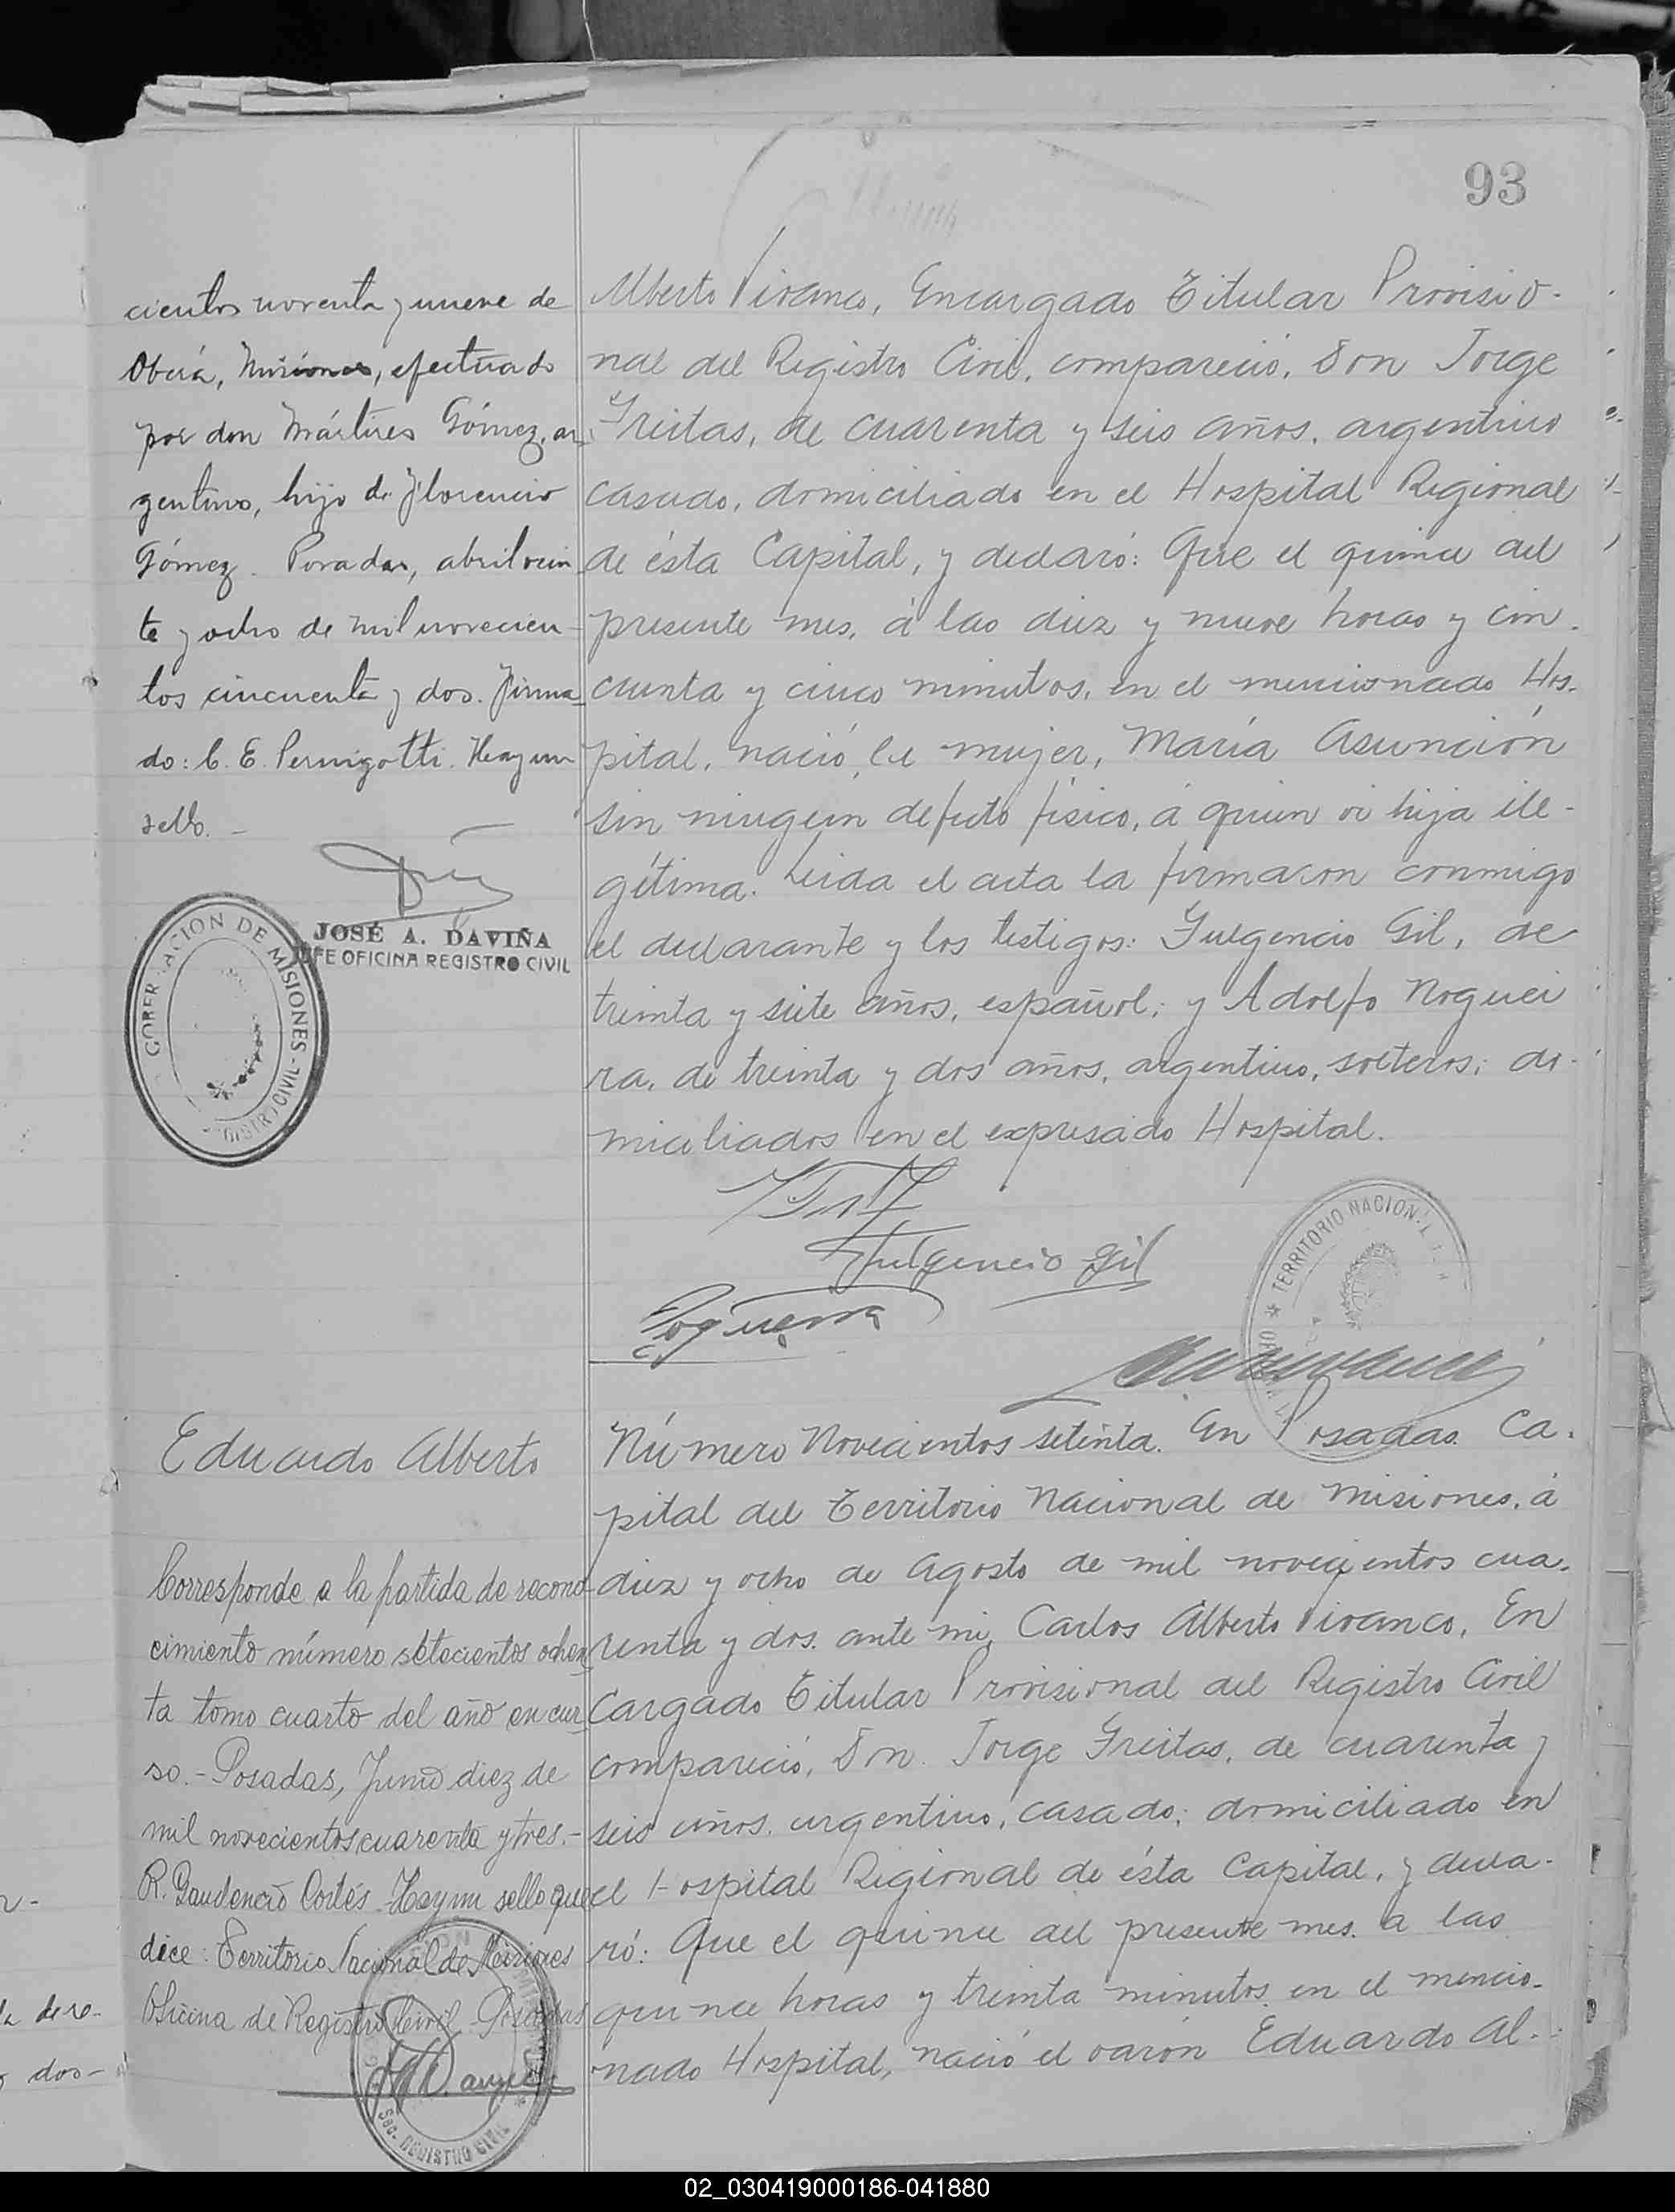 93
cientos noventa y nueve de
Oberá, Misiones, efectuado
por don Mártires Gómez, ar
gentino, hijo de Florencio
Gómez. Posadas, abril vein
te y ocho de mil novecien
tos cincuenta y dos. Firma
do: C. E. Pernigotti. Hay un
sello. -
JOSÉ A. DAVIÑA
JEFE OFICINA REGISTRO CIVIL
GOBERNACION DE MISIONES - REGISTRO CIVIL
Alberto Vivanco, Encargado Titular Provisio-
nal del Registro Civil, compareció, Don Jorge
Freitas, de cuarenta y seis años, argentino
casado, domiciliado en el Hospital Regional
de ésta Capital, y declaró: Que el quince del
presente mes, á las diez y nueve horas y cin-
cuenta y cinco minutos, en el mencionado Hos-
pital, nació la mujer, María Asunción
sin ningun defecto físico, á quien vi hija ile-
gítima. Leida el acta la firmaron conmigo
el declarante y los testigos: Fulgencio Gil, de
treinta y siete años, español; y Adolfo Noguei
ra, de treinta y dos años, argentino, solteros; do-
miciliados en el expresado Hospital.
Fulgencio Gil
Nogueira
TERRITORIO NACIONAL
Eduardo Alberto
Corresponde a la partida de recono
cimiento número setecientos ochen
ta tomo cuarto del año en cur
so. - Posadas, Junio diez de
mil novecientos cuarenta y tres. -
R. Gaudencio Cortés. Hay un sello que
dice: Territorio Nacional de Misiones
Oficina de Registro Civil. Posadas
Sec. REGISTRO CIVIL
Número Novecientos setenta. En Posadas. Ca-
pital del Territorio Nacional de Misiones, á
diez y ocho de Agosto de mil novecientos cua-
renta y dos. ante mi, Carlos Alberto Vivanco, En
Cargado Titular Provisional del Registro Civil
compareció, Don. Jorge Freitas, de cuarenta y
seis años. argentino, casado; domiciliado en
el Hospital Regional de ésta Capital, y decla-
ró: Que el quince del presente mes. a las
quince horas y treinta minutos. en el mencio-
nado Hospital, nació el varón Eduardo Al-
la de re-
y dos-
02_030419000186-041880